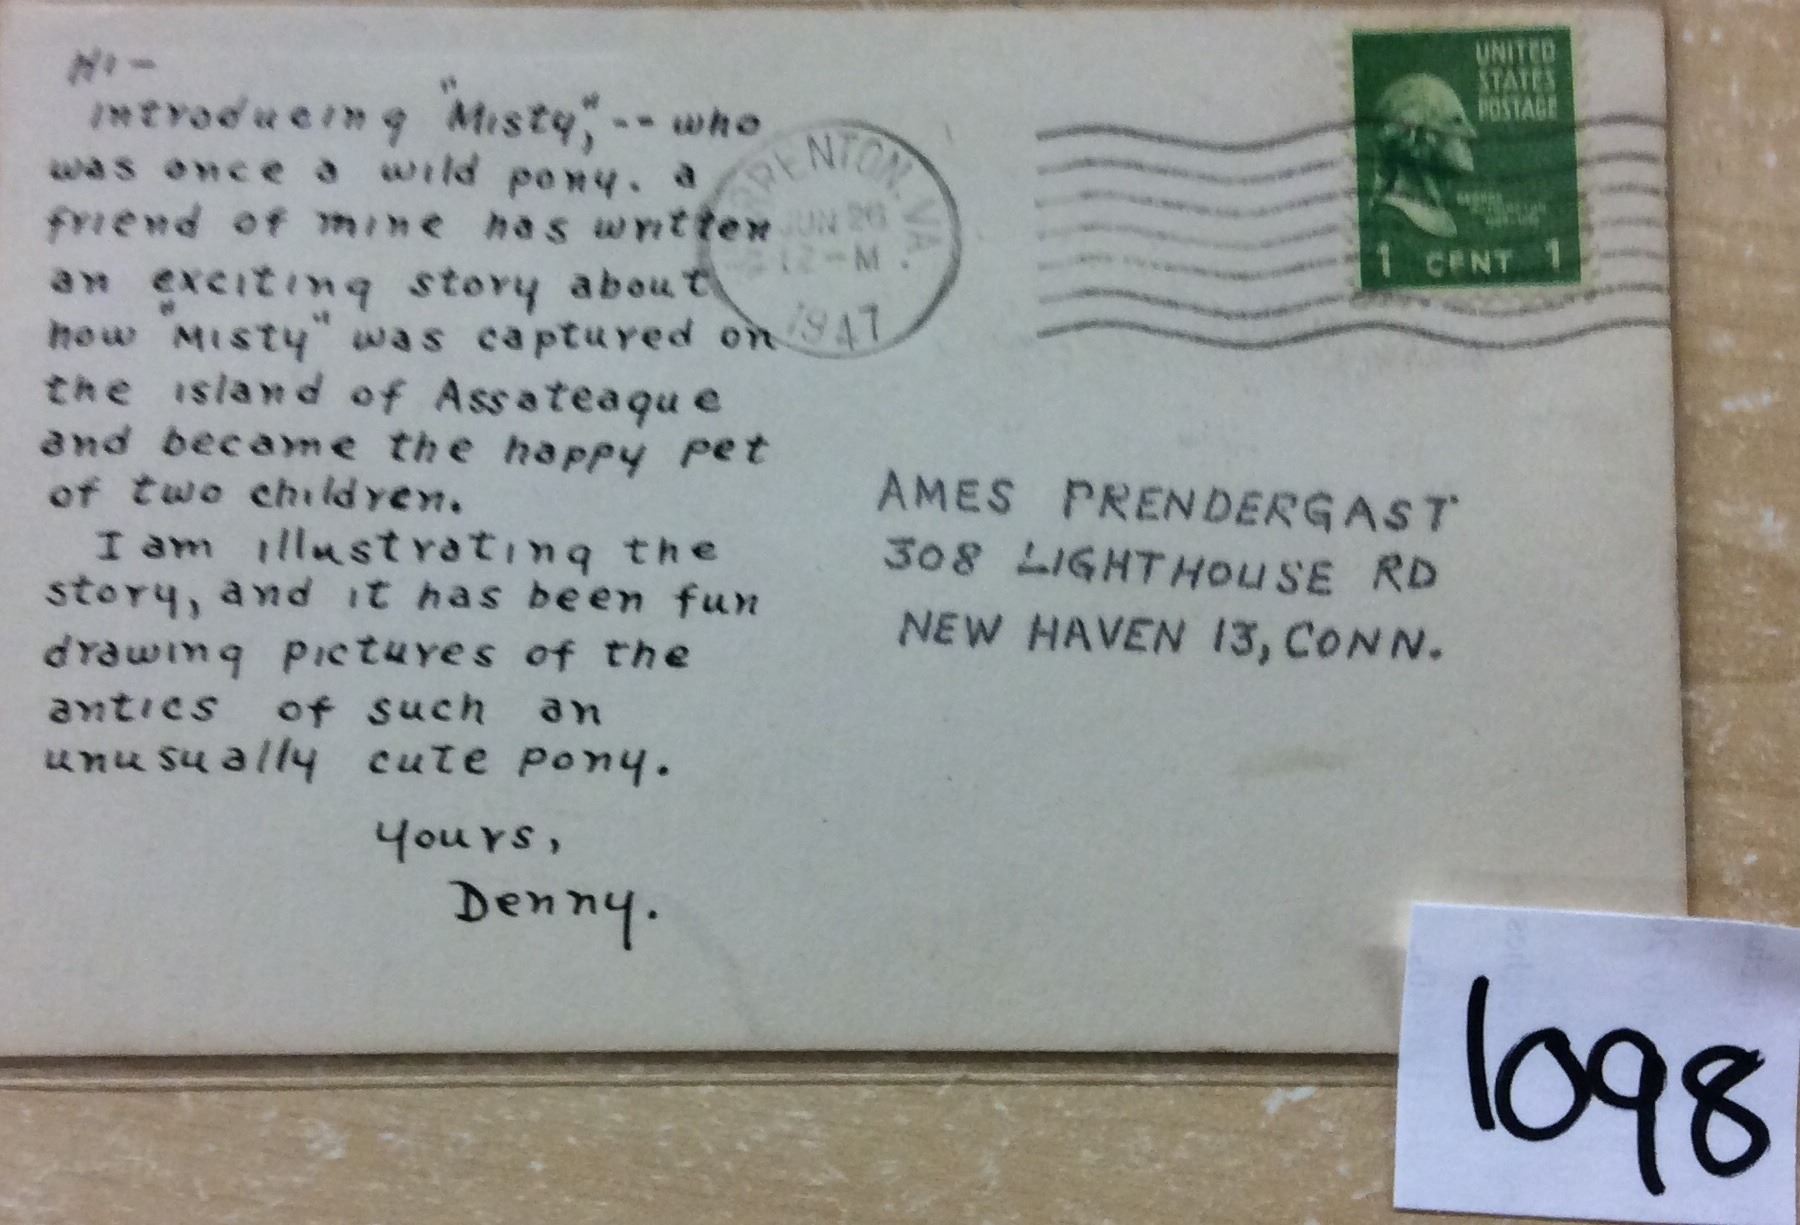 Hi -
introducing "Misty," -- who
was once a wild pony. a
friend of mine has written
an exciting story about
how "Misty" was captured on
the island of Assateague
and became the happy pet
of two children.
I am illustrating the
story, and it has been fun
drawing pictures of the
antics of such an
unusually cute pony.
Yours,
Denny.
RRENTON, VA.
JUN 26
12 - M
1947
UNITED
STATES
POSTAGE
1 CENT 1
AMES PRENDERGAST
308 LIGHTHOUSE RD
NEW HAVEN 13, CONN.
1098